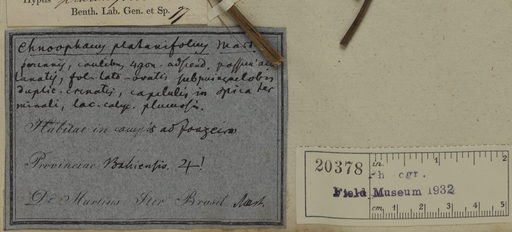 Hyptis
Benth. Lab. Gen. et Sp. 77
Chnoophaceus platanifolius Mart.
perennis, caulibus 4gon. adscend. passim
lanatis, fol. lato-ovatis subquinquelobis
duplic. crenatis, capitulis in spica ter
minali, lac. calyc. plumosis.
Habitat in campis ad Joazeiro
Provinciae Bahiensis. 4!
Dr. Martius Iter Brasil. Aust.
20378
in. 1 2
Ph. ogr.
Field Museum 1932
cm. 1 2 3 4 5